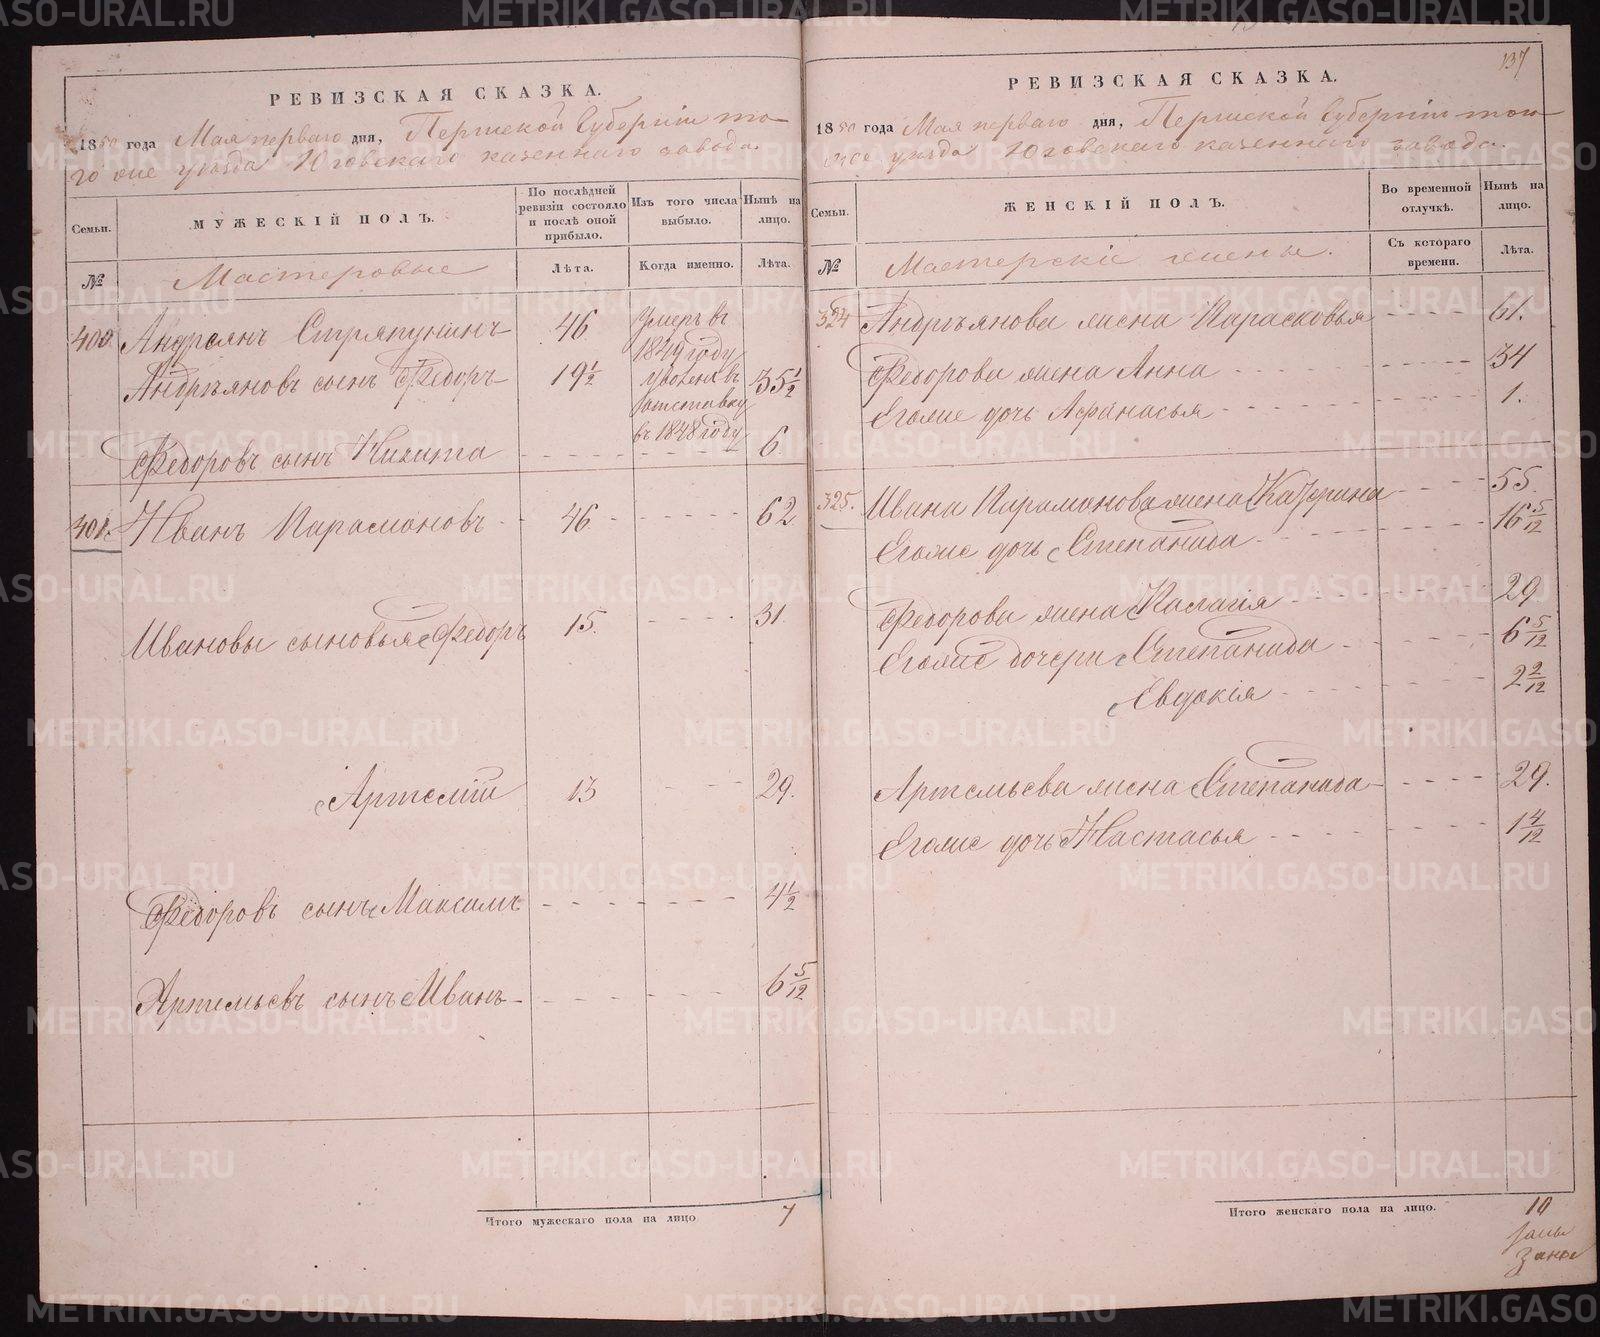 РЕВИЗСКАЯ СКАЗКА.
1850 года Мая перваго дня, Пермской Губернiи то-
го оне уѣзда Юговскаго казеннаго завода.
Семьи.
МУЖЕСКІЙ ПОЛЪ.
По послѣдней ревизіи состояло и послѣ оной прибыло.
Изъ того числа выбыло.
Нынѣ на лицо.
№
Мастеровые
Лѣта.
Когда именно.
Лѣта.
400 Андреянъ Стряпунинъ 46 Умеръ въ 1849 году
Андрѣяновъ сынъ Федоръ 19 1/2 уволенъ въ отставку въ 1848 году 35 1/2
Федоровъ сынъ Никита 6
401. Иванъ Парамоновъ 46 62
Ивановы сыновья Федоръ 15. 31.
Артемiй 13 29.
Федоровъ сынъ Максимъ 4 1/2
Артемьевъ сынъ Иванъ 6 5/12
Итого мужескаго пола на лицо 7
137
РЕВИЗСКАЯ СКАЗКА.
1850 года Мая перваго дня, Пермской Губернiи того
уѣзда Юговскаго казеннаго завода.
Семьи.
ЖЕНСКІЙ ПОЛЪ.
Во временной отлучкѣ.
Нынѣ на лицо.
№
Мастерскiе жены.
Съ котораго времени.
Лѣта.
324 Андрѣянова жена Парасковья 61.
Федорова жена Анна 34
Егоже дочь Афанасья 1.
325. Ивана Парамонова жена Катерина 55
Егоже дочь Степанида 16 5/12
Федорова жена Палагiя 29
Егоже дочери Степанида 6 5/12
Евдокiя 2 2/12
Артемьева жена Степанида 29.
Егоже дочь Настасья 1 4/12
Итого женскаго пола на лицо. 10
METRIKI.GASO-URAL.RU